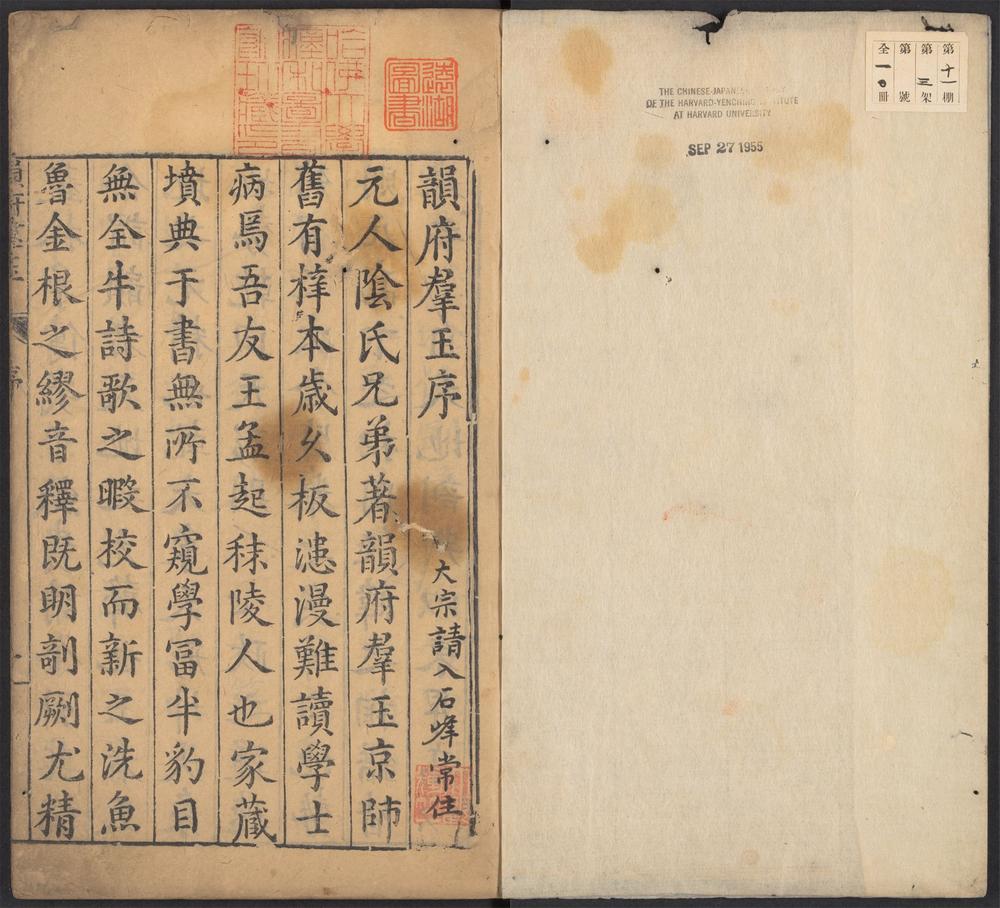 第十一棚
第三架
第 號
全一〇冊
THE CHINESE-JAPANESE
OF THE HARVARD-YENCHING INSTITUTE
AT HARVARD UNIVERSITY
SEP 27 1955
遠湖
圖書
韻府羣玉序
大宗請入石峰常住
元人陰氏兄弟著韻府羣玉京師
舊有梓本歲久板漶漫難讀學士
病焉吾友王孟起秣陵人也家藏
墳典于書無所不窺學冨半豹目
無全牛詩歌之暇校而新之洗魚
魯金根之繆音釋既明剞劂尤精
韻府羣玉
序